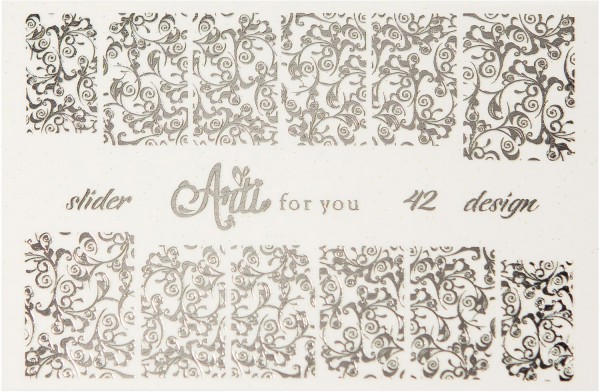 slider Anti for you 42 design